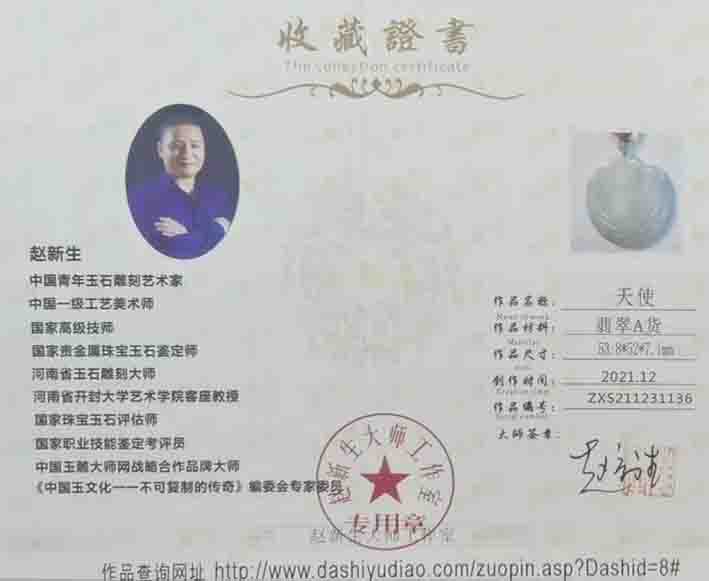 收藏證書
The collection certificate
赵新生
中国青年玉石雕刻艺术家
中国一级工艺美术师
国家高级技师
国家贵金属珠宝玉石鉴定师
河南省玉石雕刻大师
河南省开封大学艺术学院客座教授
国家珠宝玉石评估师
国家职业技能鉴定考评员
中国玉雕大师网战略合作品牌大师
《中国玉文化一一不可复制的传奇》编委会专家委员
作品名称： 天使
作品材料： 翡翠A货
Material
作品尺寸： 53.8*52*7.1mm
创作时间： 2021.12
作品编号： ZXS211231136
大师签章：
赵新生
赵新生大师工作室
专用章
赵新生大师工作室
作品查询网址 http://www.dashiyudiao.com/zuopin.asp?Dashid=8#